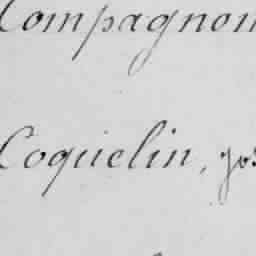 Compagnon
Coquelin, jos